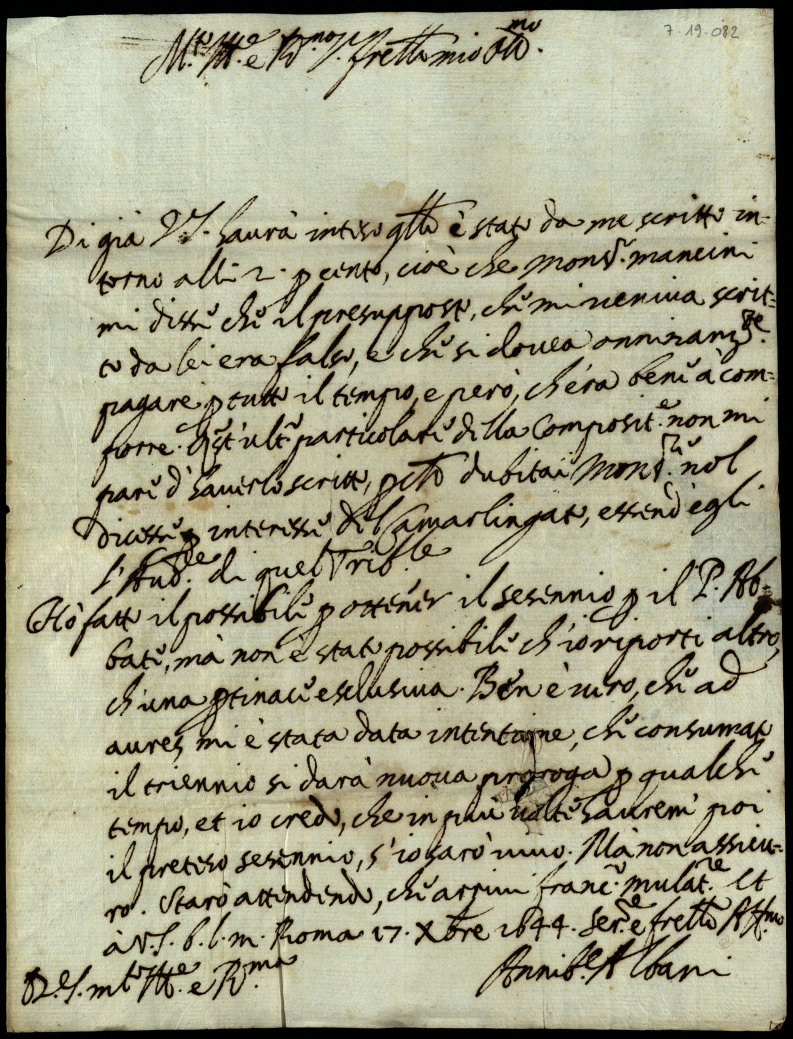 7-19-082
M.to Ill.e e R.mo S. fretllo mio Oss.mo
Di già V.S. haurà inteso qtto è stato da me scritto in-
torno alli 2. p cento, cioè che Mons.r Mancini
mi disse che il presupposto, che mi veniva scrit-
to da lei era falso, e che si dovea
pagare p tutto il tempo, e però, ch'era bene à com-
porre. Qst'ult.e particolare della Composit.e non mi
pare d'haverlo scritto, pche dubitai Mons.r nol
dicesse p interesse del Camarlingato, essend'egli
l'Aud.re di quel Trib.le
Hò fatto il possibile p ottener il sesennio p il P. Ab-
bate, mà non è stato possibile ch'io riporti altro,
ch'una ptinace esclusiva. Ben è vero, che ad
aures mi è stata data intentione, che consumato
il triennio si darà nuova proroga p qualche
tempo, et io credo, che in più volte haurem' poi
il preteso sesennio, s'io sarò vivo. Mà non assicu-
ro. Starò attendendo, che arrivi franc.o mulat.re Et
à V.S. b. l. m. Roma 17. Xbre 1644. Ser.e e fretllo Aff.mo
D.V.S. m.to Ill.e e R.ma
Annib.e Albani